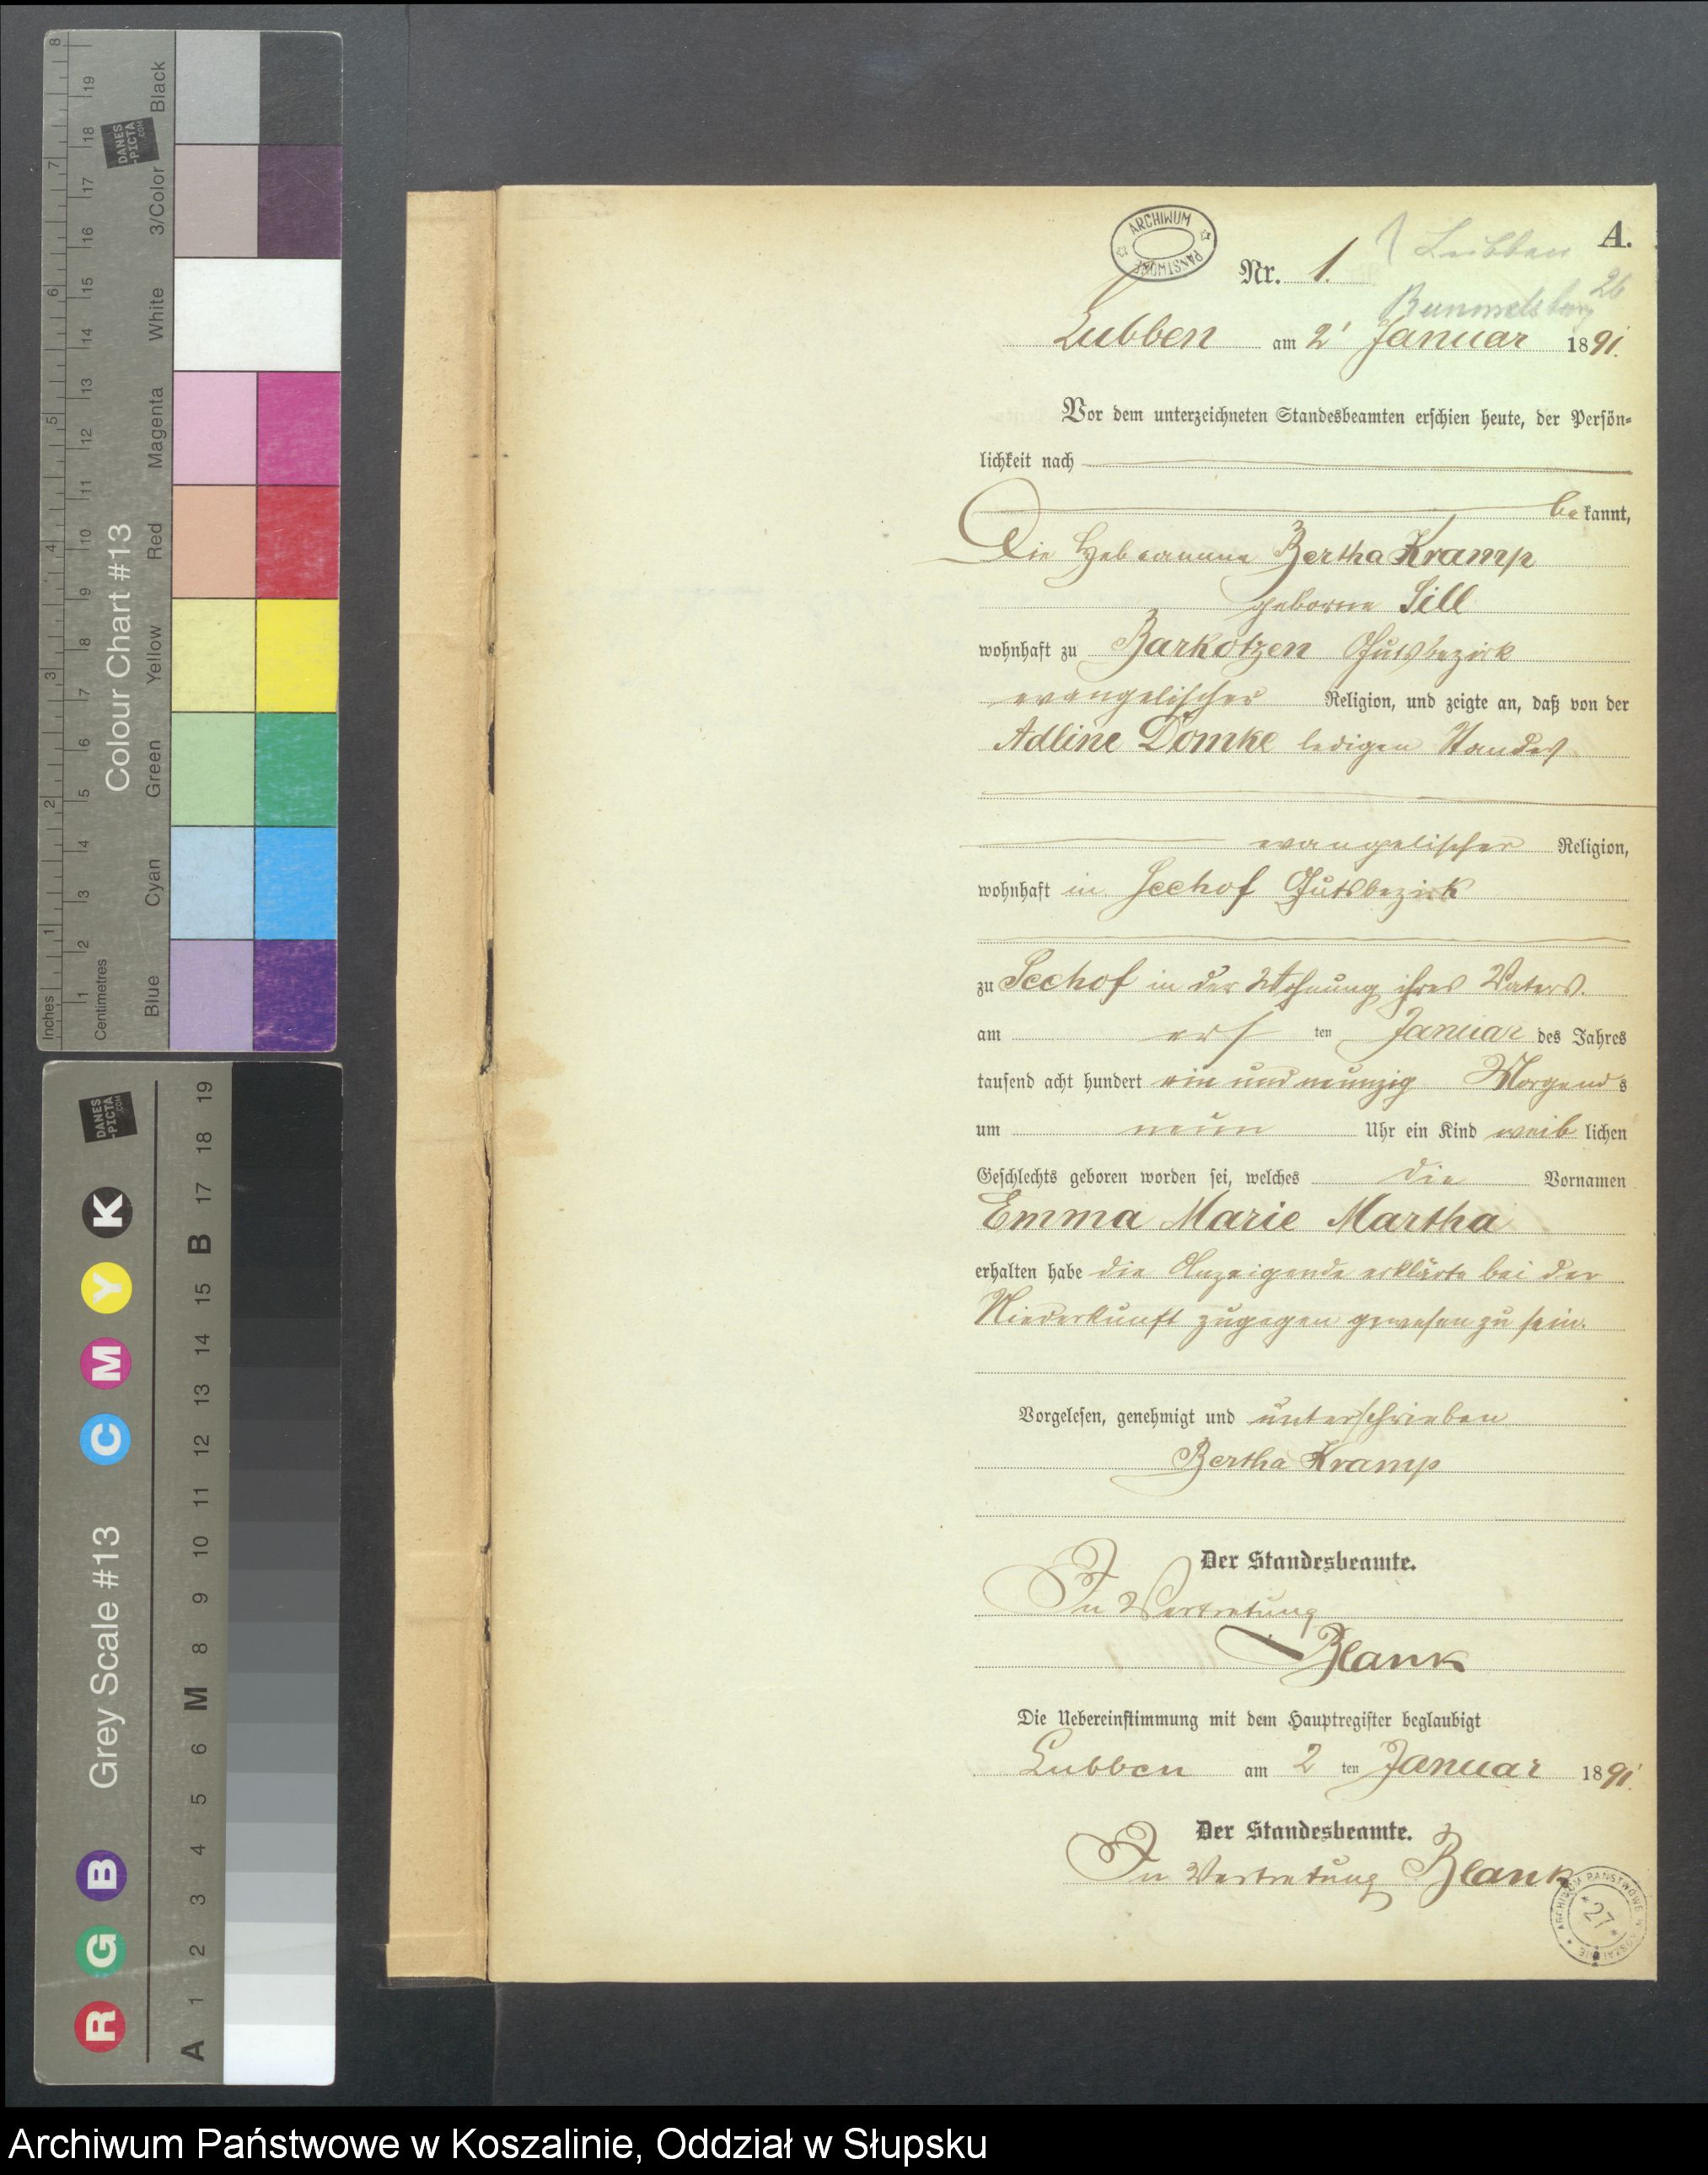 A.
Nr. 1.
1 Lubben
Rummelsburg 26
Lubben am 2' Januar 1891.
Vor dem unterzeichneten Standesbeamten erschien heute, der Persön-
lichkeit nach
bekannt,
Die Hebeamme Bertha Kramp
geborne Sill
wohnhaft zu Barkotzen Gutsbezirk
evangelischer Religion, und zeigte an, daß von der
Adline Domke ledigen Standes
evangelischer Religion,
wohnhaft in Seehof Gutsbezirk
zu Seehof in der Wohnung ihres Vaters.
am ersten Januar des Jahres
tausend acht hundert ein und neunzig Morgends
um neun Uhr ein Kind weiblichen
Geschlechts geboren worden sei, welches die Vornamen
Emma Marie Martha
erhalten habe die Anzeigende erklärte bei der
Niederkunft zugegen gewesen zu sein.
Vorgelesen, genehmigt und unterschrieben
Bertha Kramp
Der Standesbeamte.
In Vertretung
Blank
Die Uebereinstimmung mit dem Hauptregister beglaubigt
Lubben am 2 ten Januar 1891.
Der Standesbeamte.
In Vertretung Blank
ARCHIWUM PAŃSTWOWE
ARCHIWUM PAŃSTWOWE W KOSZALINIE
27
Inches 1 2 3 4 5 6 7 8
Centimetres 1 2 3 4 5 6 7 8 9 10 11 12 13 14 15 16 17 18 19
DANES-PICTA.COM
Colour Chart #13
Blue Cyan Green Yellow Red Magenta White 3/Color Black
DANES-PICTA.COM
R G B Grey Scale #13 C M Y K
A 1 2 3 4 5 6 M 8 9 10 11 12 13 14 15 B 17 18 19
Archiwum Państwowe w Koszalinie, Oddział w Słupsku